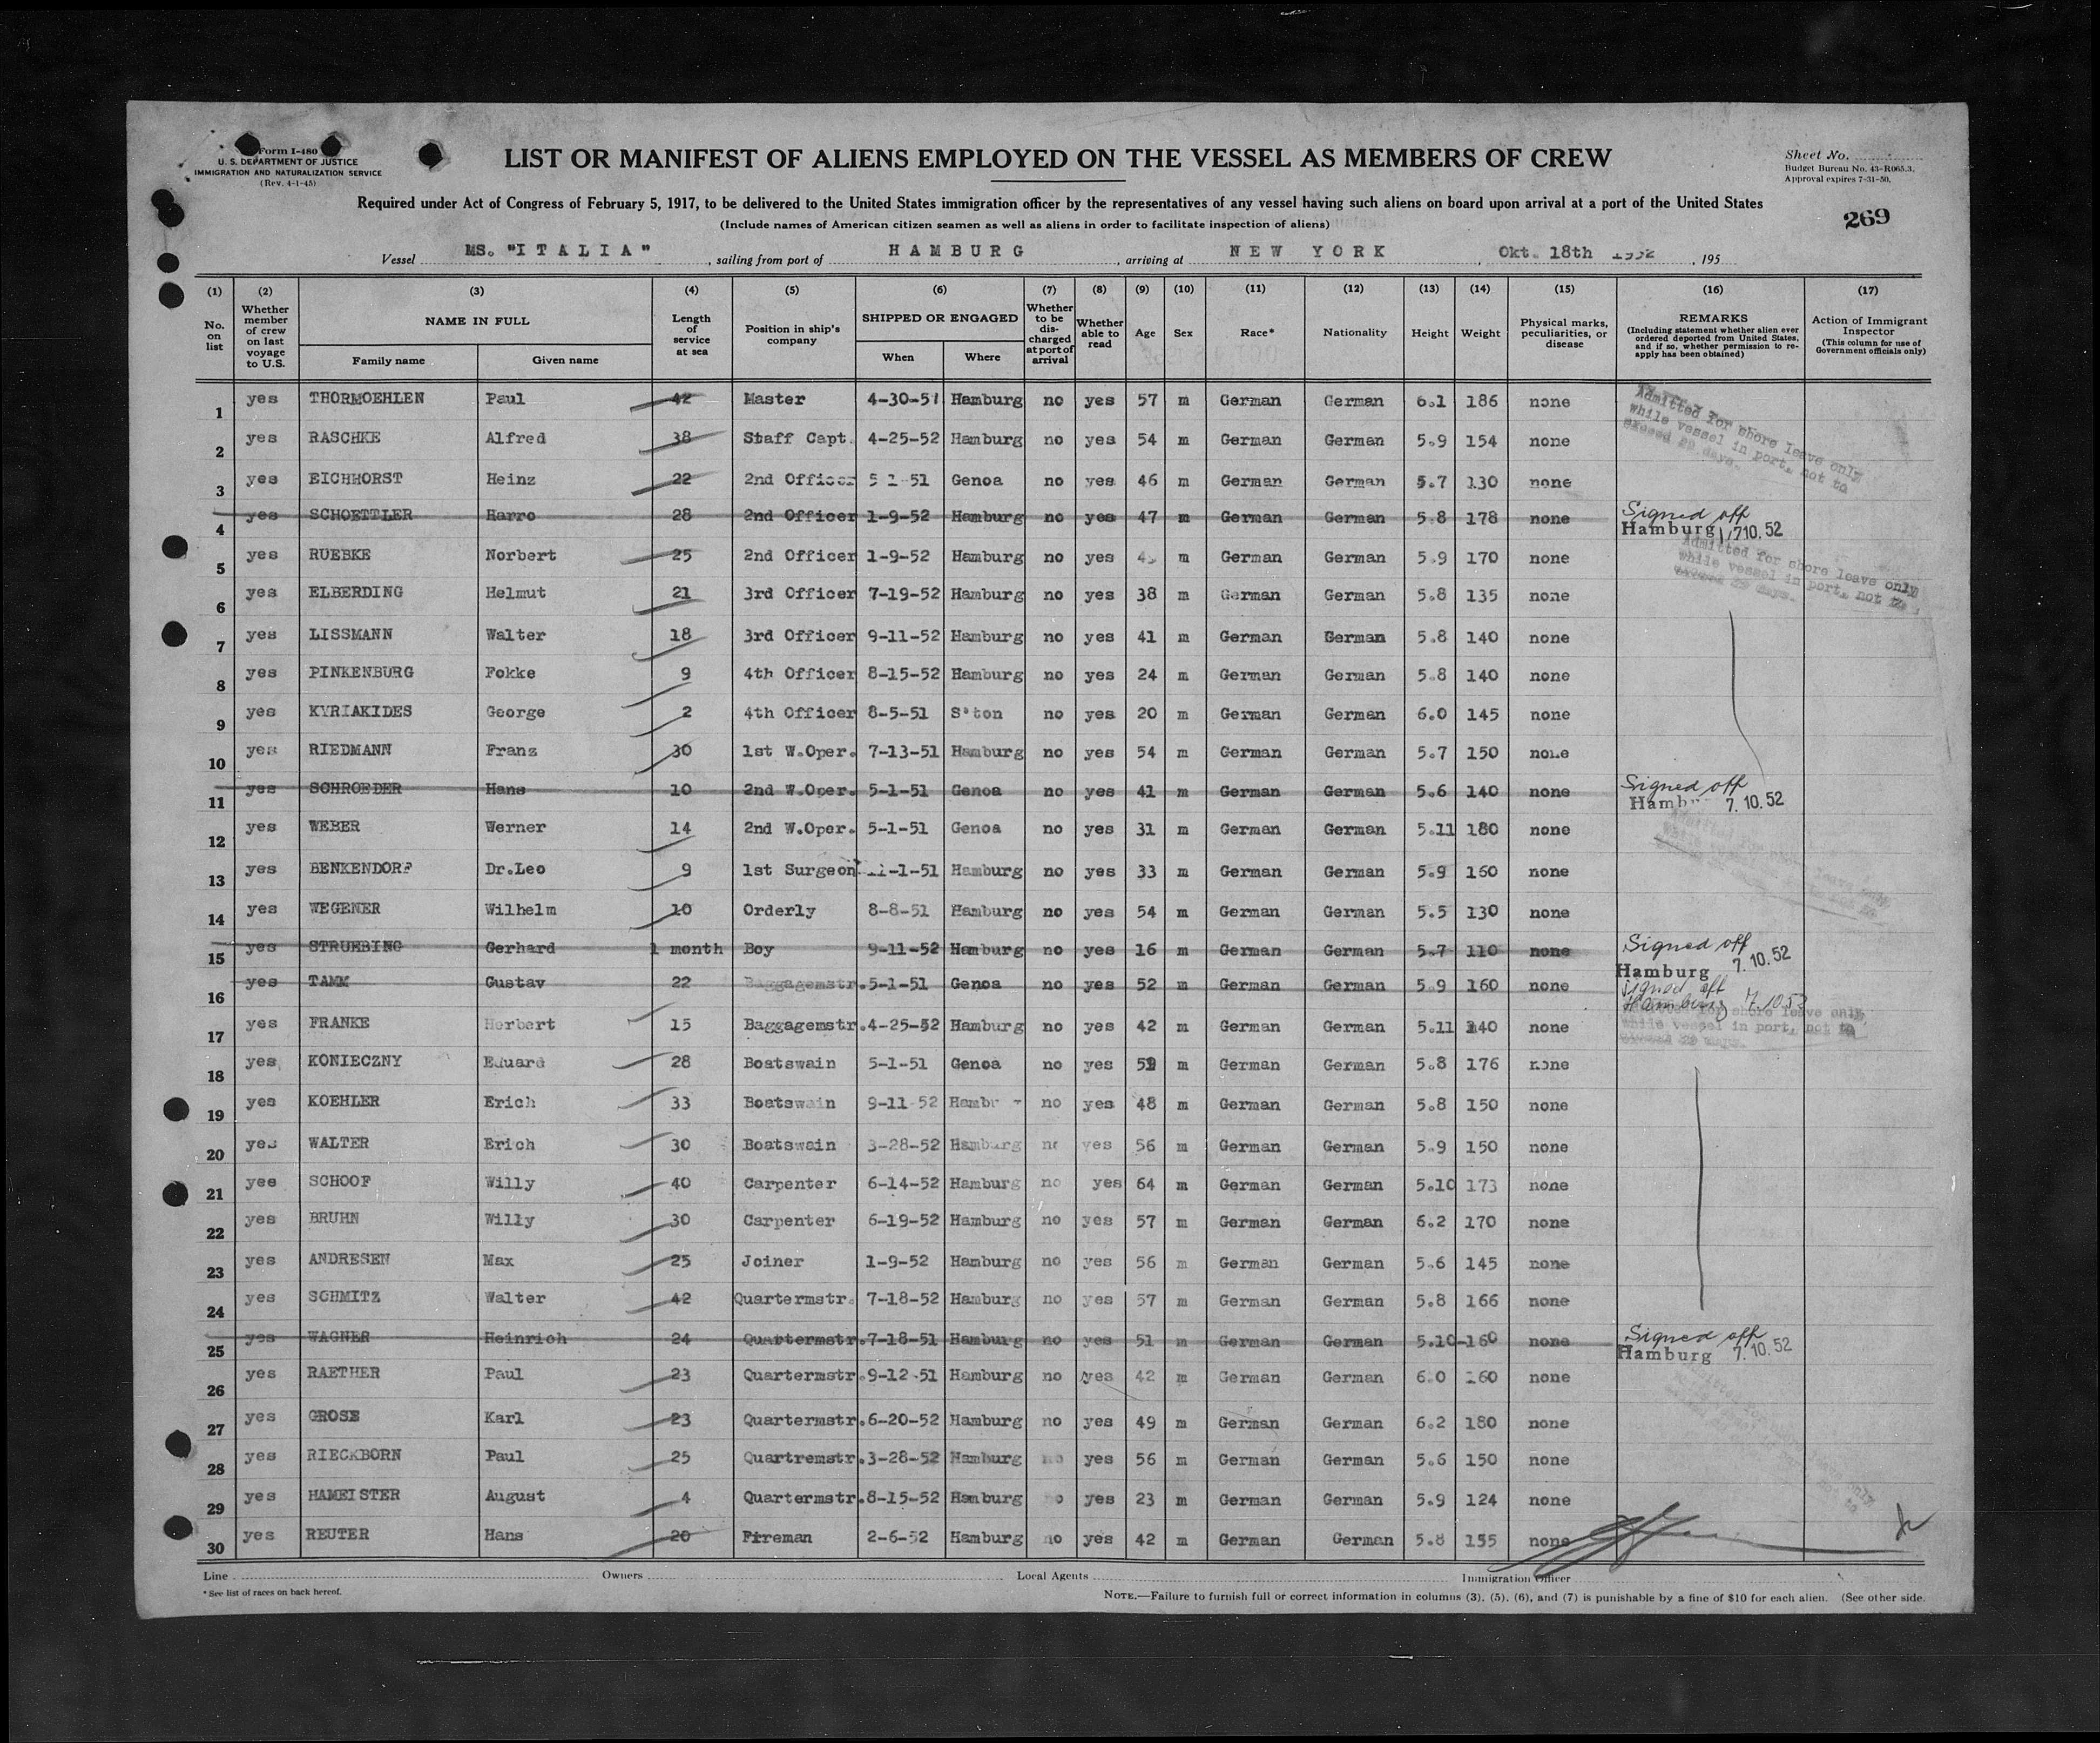 Form I-480
U. S. DEPARTMENT OF JUSTICE
IMMIGRATION AND NATURALIZATION SERVICE
(Rev. 4-1-45)
LIST OR MANIFEST OF ALIENS EMPLOYED ON THE VESSEL AS MEMBERS OF CREW
Sheet No.
Budget Bureau No. 43-R065.3.
Approval expires 7-31-50.
Required under Act of Congress of February 5, 1917, to be delivered to the United States immigration officer by the representatives of any vessel having such aliens on board upon arrival at a port of the United States
(Include names of American citizen seamen as well as aliens in order to facilitate inspection of aliens)
269
Vessel MS. "ITALIA", sailing from port of HAMBURG, arriving at NEW YORK, Okt. 18th 1952, 195
(1) (2) (3) (4) (5) (6) (7) (8) (9) (10) (11) (12) (13) (14) (15) (16) (17)
No. on list
Whether member of crew on last voyage to U.S.
NAME IN FULL
Family name Given name
Length of service at sea
Position in ship's company
SHIPPED OR ENGAGED
When Where
Whether to be discharged at port of arrival
Whether able to read
Age Sex Race* Nationality Height Weight
Physical marks, peculiarities, or disease
REMARKS
(Including statement whether alien ever ordered deported from United States, and if so, whether permission to reapply has been obtained)
Action of Immigrant Inspector
(This column for use of Government officials only)
1 yes THORMOEHLEN Paul 42 Master 4-30-51 Hamburg no yes 57 m German German 6.1 186 none
Admitted for shore leave only
while vessel in port, not to
exceed 29 days.
2 yes RASCHKE Alfred 38 Staff Capt. 4-25-52 Hamburg no yes 54 m German German 5.9 154 none
3 yes EICHHORST Heinz 22 2nd Officer 5-1-51 Genoa no yes 46 m German German 5.7 130 none
4 yes SCHOETTLER Harro 28 2nd Officer 1-9-52 Hamburg no yes 47 m German German 5.8 178 none Signed off
Hamburg 7.10.52
5 yes RUEBKE Norbert 25 2nd Officer 1-9-52 Hamburg no yes m German German 5.9 170 none
Admitted for shore leave only
while vessel in port, not to
exceed 29 days.
6 yes ELBERDING Helmut 21 3rd Officer 7-19-52 Hamburg no yes 38 m German German 5.8 135 none
7 yes LISSMANN Walter 18 3rd Officer 9-11-52 Hamburg no yes 41 m German German 5.8 140 none
8 yes PINKENBURG Fokke 9 4th Officer 8-15-52 Hamburg no yes 24 m German German 5.8 140 none
9 yes KYRIAKIDES George 2 4th Officer 8-5-51 S'ton no yes 20 m German German 6.0 145 none
10 yes RIEDMANN Franz 30 1st W.Oper. 7-13-51 Hamburg no yes 54 m German German 5.7 150 none
11 yes SCHROEDER Hans 10 2nd W.Oper. 5-1-51 Genoa no yes 41 m German German 5.6 140 none Signed off
Hamburg 7.10.52
12 yes WEBER Werner 14 2nd W.Oper. 5-1-51 Genoa no yes 31 m German German 5.11 180 none
13 yes BENKENDORF Dr.Leo 9 1st Surgeon -1-51 Hamburg no yes 33 m German German 5.9 160 none
14 yes WEGENER Wilhelm 10 Orderly 8-8-51 Hamburg no yes 54 m German German 5.5 130 none
15 yes STRUEBING Gerhard 1 month Boy 9-11-52 Hamburg no yes 16 m German German 5.7 110 none Signed off
Hamburg 7.10.52
16 yes TAMM Gustav 22 Baggagemstr. 5-1-51 Genoa no yes 52 m German German 5.9 160 none Signed off
Hamburg 7.10.52
17 yes FRANKE Herbert 15 Baggagemstr. 4-25-52 Hamburg no yes 42 m German German 5.11 140 none
Admitted for shore leave only
while vessel in port, not to
exceed 29 days.
18 yes KONIECZNY Eduard 28 Boatswain 5-1-51 Genoa no yes 52 m German German 5.8 176 none
19 yes KOEHLER Erich 33 Boatswain 9-11-52 Hamburg no yes 48 m German German 5.8 150 none
20 yes WALTER Erich 30 Boatswain 3-28-52 Hamburg no yes 56 m German German 5.9 150 none
21 yes SCHOOF Willy 40 Carpenter 6-14-52 Hamburg no yes 64 m German German 5.10 173 none
22 yes BRUHN Willy 30 Carpenter 6-19-52 Hamburg no yes 57 m German German 6.2 170 none
23 yes ANDRESEN Max 25 Joiner 1-9-52 Hamburg no yes 56 m German German 5.6 145 none
24 yes SCHMITZ Walter 42 Quartermstr. 7-18-52 Hamburg no yes 57 m German German 5.8 166 none
25 yes WAGNER Heinrich 24 Quartermstr. 7-18-51 Hamburg no yes 51 m German German 5.10 160 none Signed off
Hamburg 7.10.52
26 yes RAETHER Paul 23 Quartermstr. 9-12-51 Hamburg no yes 42 m German German 6.0 160 none
27 yes GROSE Karl 23 Quartermstr. 6-20-52 Hamburg no yes 49 m German German 6.2 180 none
28 yes RIECKBORN Paul 25 Quartremstr. 3-28-52 Hamburg no yes 56 m German German 5.6 150 none
29 yes HAMEISTER August 4 Quartermstr. 8-15-52 Hamburg no yes 23 m German German 5.9 124 none
30 yes REUTER Hans 20 Fireman 2-6-52 Hamburg no yes 42 m German German 5.8 155 none
Line Owners Local Agents Immigration Officer
* See list of races on back hereof.
NOTE.—Failure to furnish full or correct information in columns (3), (5), (6), and (7) is punishable by a fine of $10 for each alien. (See other side.